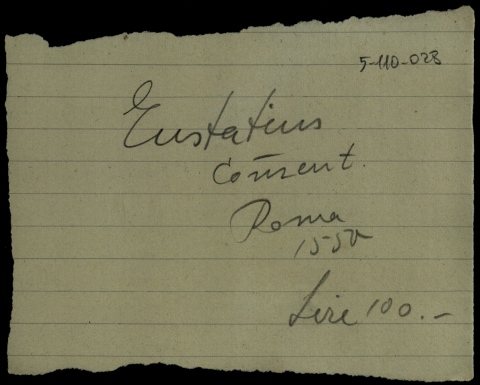 5-110-028
Eustatius
Com̄ent.
Roma
1550
Lire 100.-